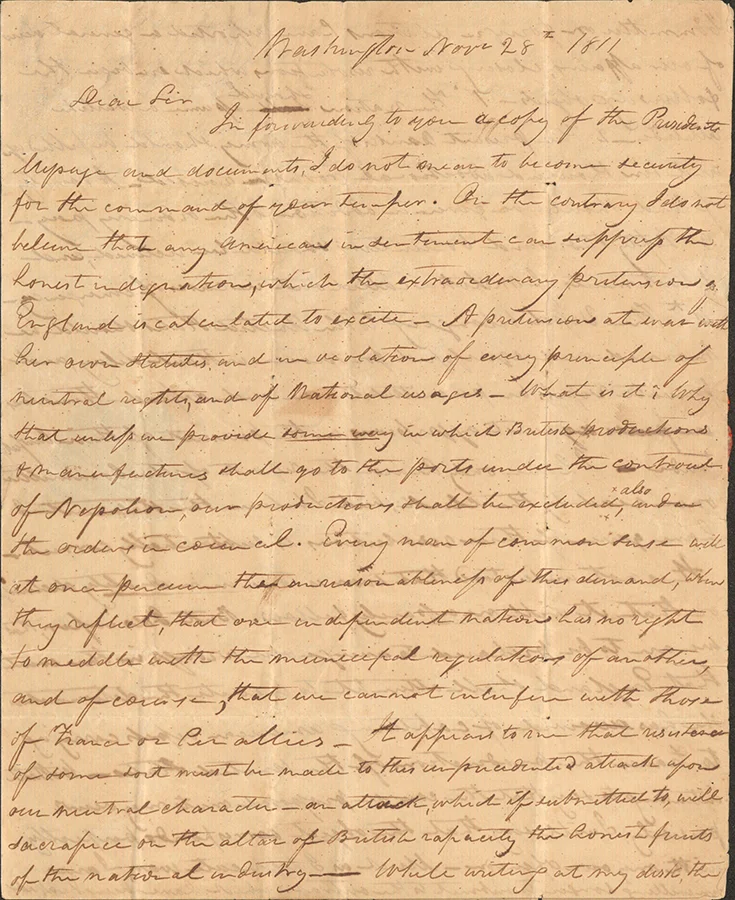 Washington Nov. 28th 1811
Dear Sir
In forwarding to you a copy of the Presidents
Message and documents, I do not mean to become security
for the command of your temper. On the contrary I do not
believe that any American in sentiment can suppress the
honest indignation, which the extraordinary pretension of
England is calculated to excite — A pretension at war with
her own statutes, and in violation of every principle of
neutral rights, and of National usages — What is it? Why
that unless we provide some way in which British productions
& manufactures shall go to the ports under the controul
of Napoleon, our productions shall be excluded, also under
the orders in council. Every man of common sense will
at once perceive the unreasonableness of this demand, when
they reflect, that one independent nation has no right
to meddle with the municipal regulations of another,
and of course, that we cannot interfere with those
of France or her allies — It appears to me that resistance
of some sort must be made to this unprecedented attack upon
our neutral character — an attack, which if submitted to, will
sacrafice on the altar of British rapacity the honest fruits
of the national industry — While writing at my desk, the